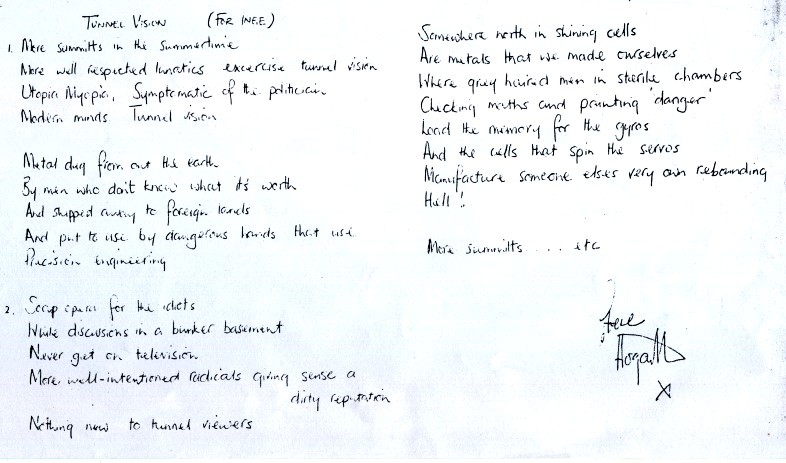 TUNNEL VISION (FOR INEE)
1. More summitts in the summertime
More well respected lunatics excercise tunnel vision
Utopia Myopia, Symptomatic of the politician
Modern minds Tunnel vision
Metal dug from out the earth
By men who don't know what it's worth
And shipped away to foreign lands
And put to use by dangerous hands that use
Precision engineering
2. Soap opera for the idiots
While discussions in a bunker basement
Never get on television
More well-intentioned radicals giving sense a
dirty reputation
Nothing new to tunnel viewers
Somewhere north in shining cells
Are metals that we made ourselves
Where grey haired men in sterile chambers
Checking maths and painting 'danger'
Load the memory for the gyros
And the cells that spin the servos
Manufacture someone elses very own rebounding
Hell!
More summitts .... etc
Steve
Hogarth
X